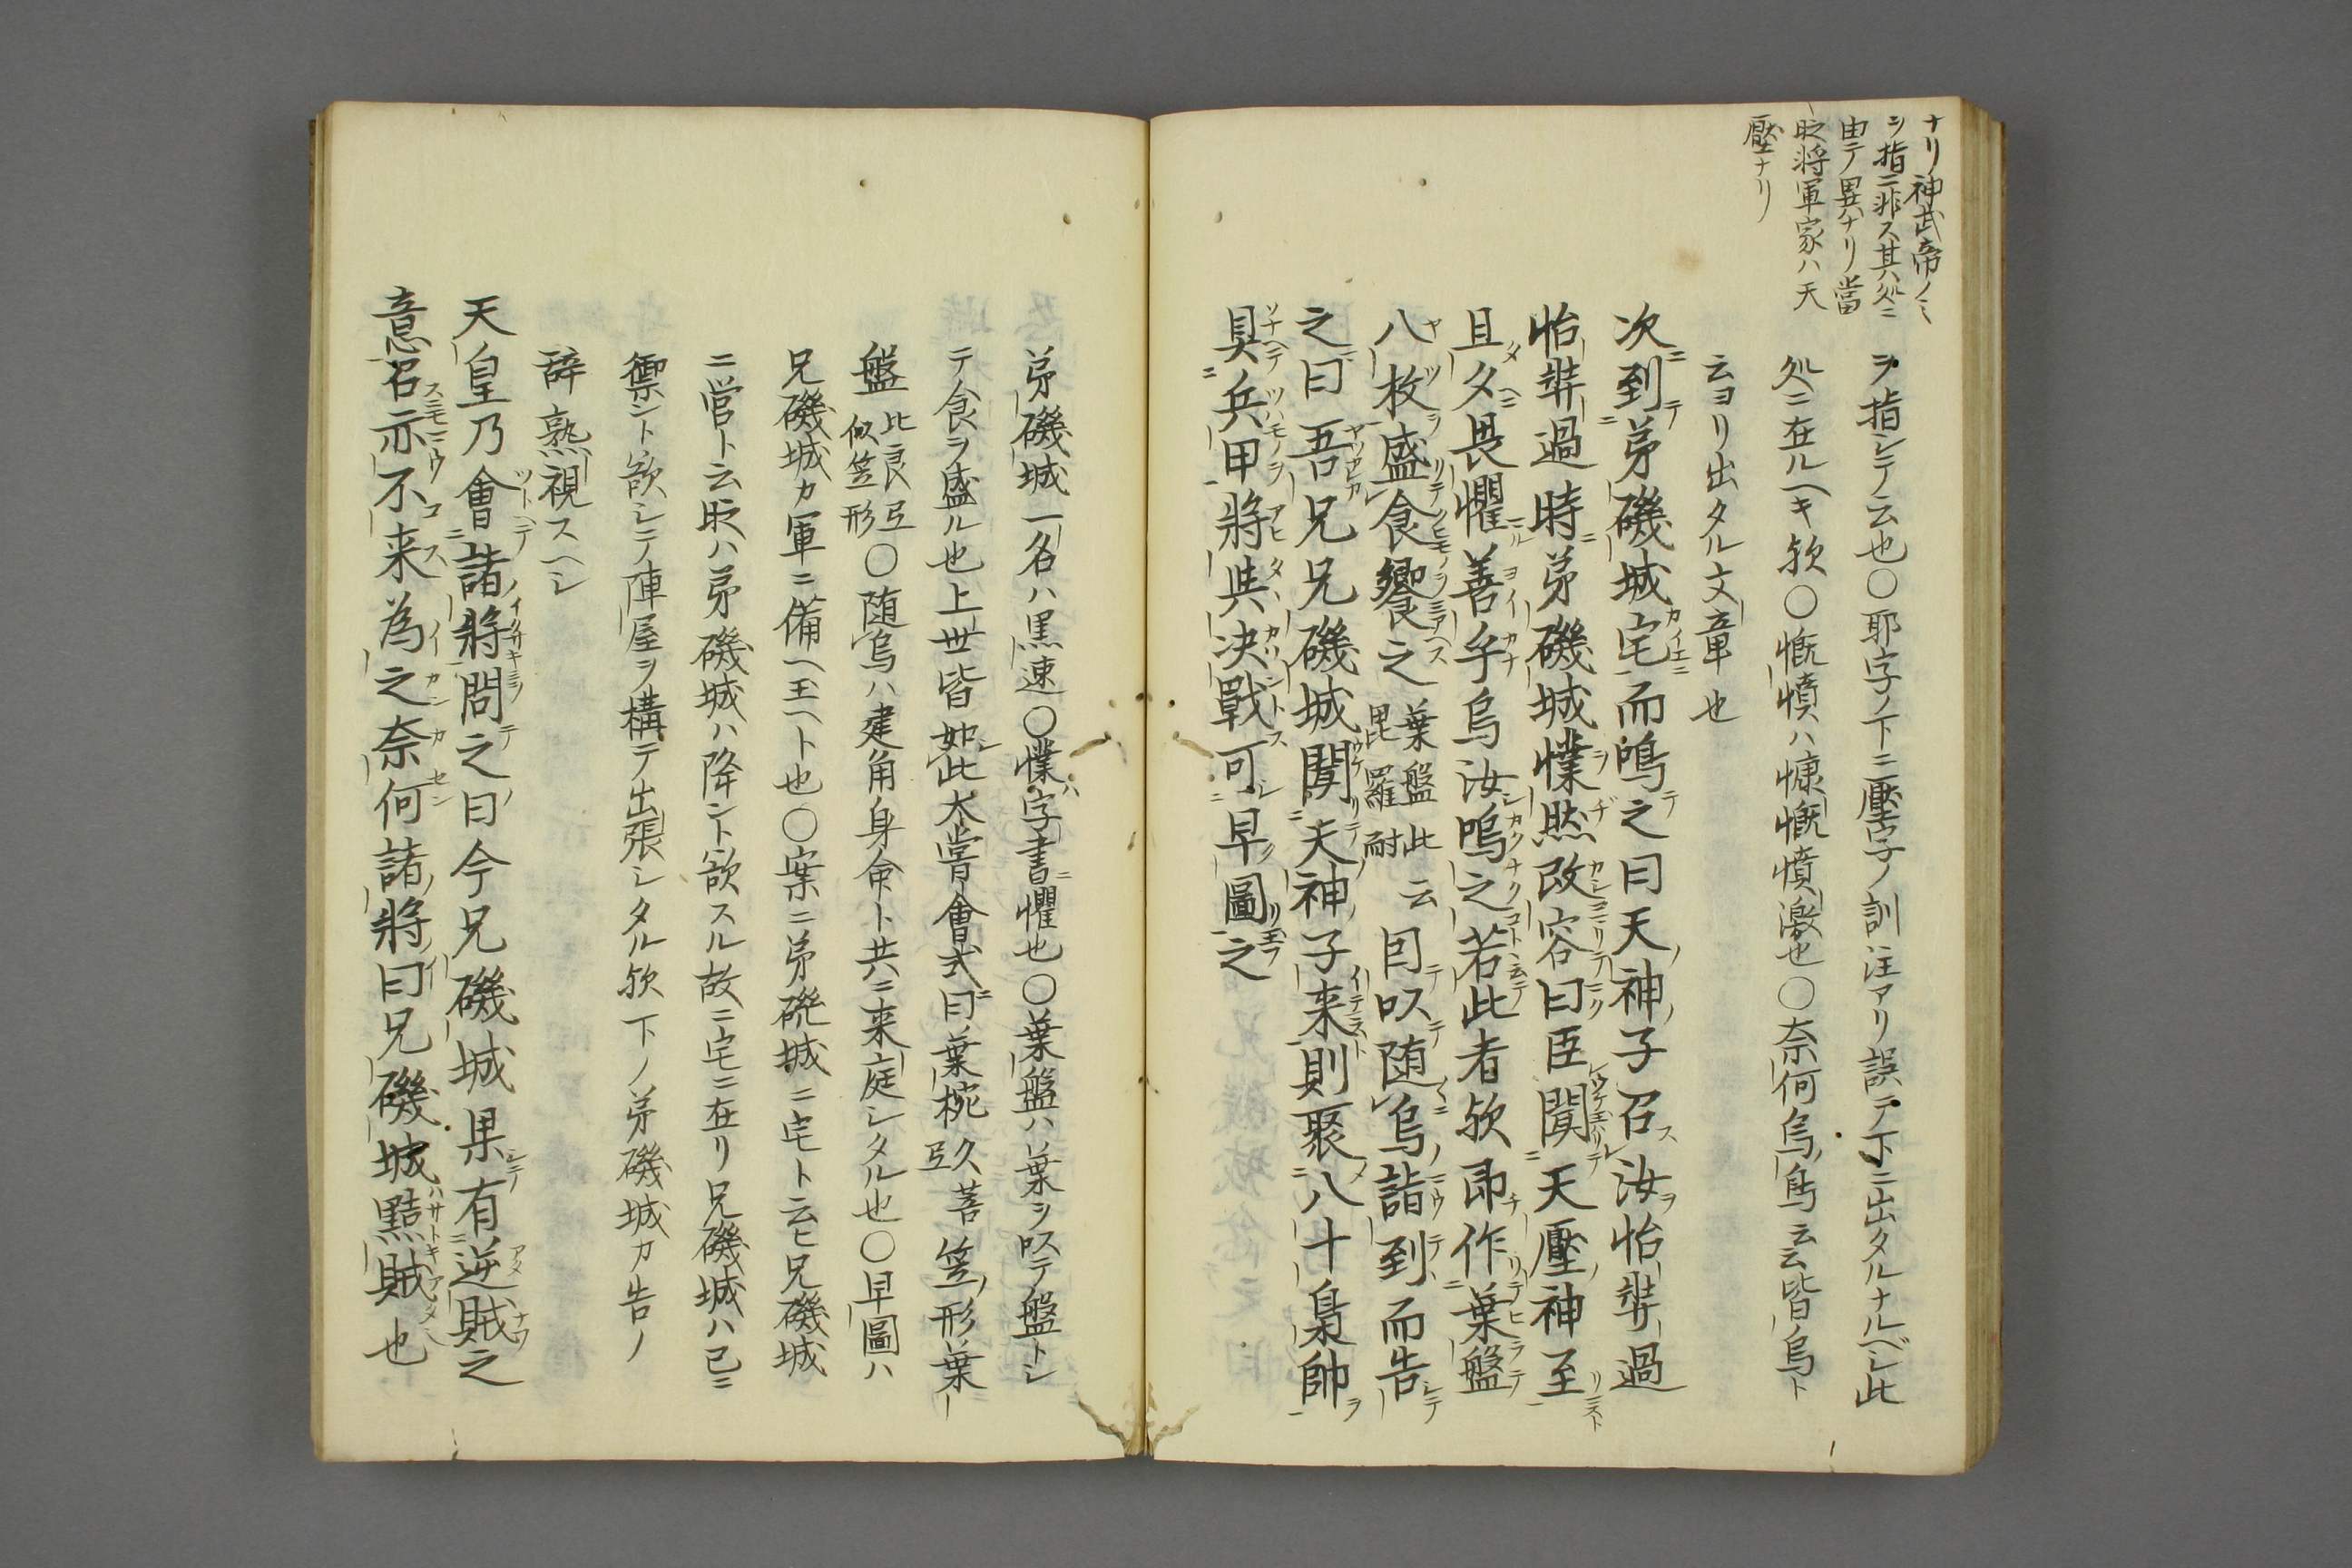 ナリ神武帝ノミ
シ指ニ非ス其処ニ
由テノ異ナリ當
時将軍家ハ天
壓ナリ
ヲ指シテ云也〇耶字ノ下ニ壓字ノ訓注アリ誤テ下ニ出タルナルベシ此
処ニ在ルヘキ歟〇慨憤ハ慷慨憤激也〇奈何烏烏云云皆烏ト
云ヨリ出タル文章也
次到弟磯城宅而鳴之曰天神子召汝怡弉過
怡弉過時弟磯城惵然改容曰臣聞天壓神至
且夕畏懼善乎烏汝鳴之若此者歟即作葉盤
八枚盛食饗之 葉盤此云毘羅耐 因以随烏詣到而告
之曰吾兄兄磯城聞天神子来則聚八十梟帥
具兵甲将與决戰可早圖之
弟磯城一名ハ黒速〇惵字書懼也〇葉盤ハ葉ヲ以テ盤トシ
テ食ヲ盛ル也上世皆如此大嘗會式曰葉椀 久菩弖 笠形葉
盤 比良弖似笠形 〇随烏ハ建角身命ト共ニ来庭シタル也〇早圖ハ
兄磯城カ軍ニ備ヘ玉ヘト也〇案ニ弟磯城ニ宅ト云ヒ兄磯城
ニ営ト云時ハ弟磯城ハ降ント欲スル故ニ宅ニ在リ兄磯城ハ已ニ
禦ント欲シテ陣屋ヲ構テ出張シタル歟下ノ弟磯城カ告ノ
辞熟視スヘシ
天皇乃會諸将問之曰今兄磯城果有逆賊之
意召亦不来為之奈何諸将曰兄磯城黠賊也